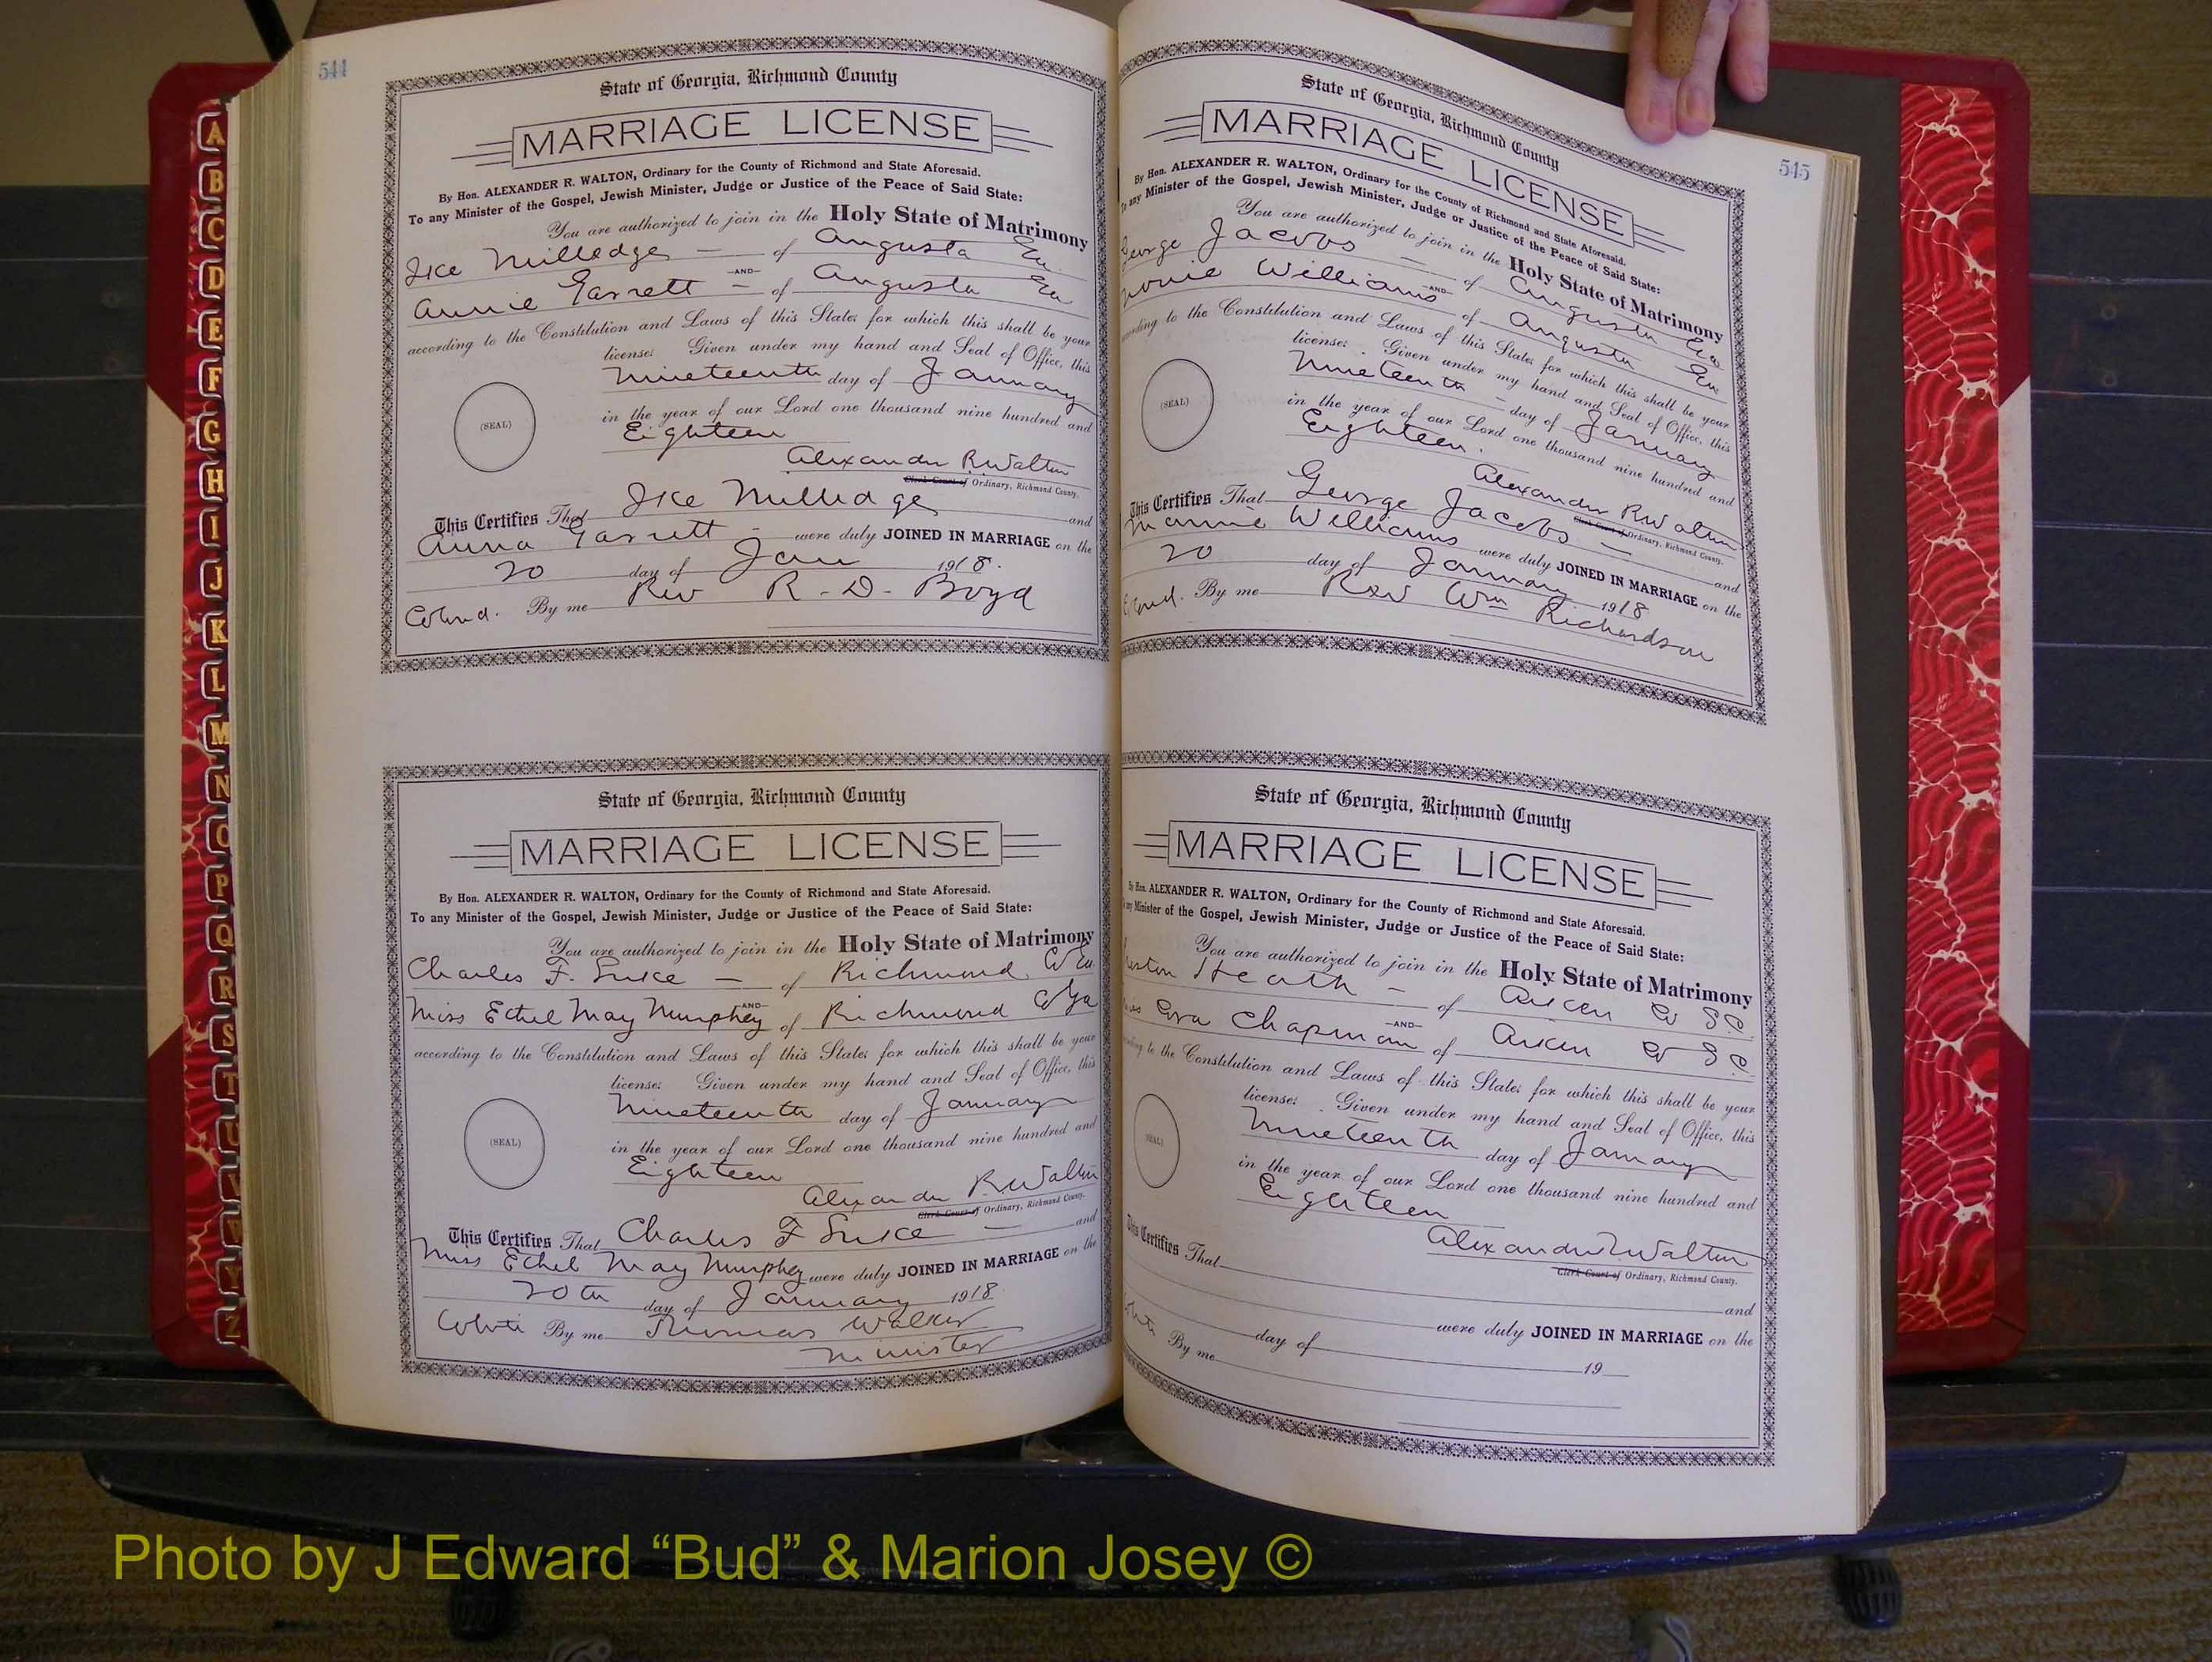 544
State of Georgia, Richmond County
MARRIAGE LICENSE
By Hon. ALEXANDER R. WALTON, Ordinary for the County of Richmond and State Aforesaid.
To any Minister of the Gospel, Jewish Minister, Judge or Justice of the Peace of Said State:
You are authorized to join in the Holy State of Matrimony
Ike Milledge — of Augusta Ga
—AND—
Annie Garrett – of Augusta Ga
according to the Constitution and Laws of this State; for which this shall be your
license: Given under my hand and Seal of Office, this
Nineteenth day of January
(SEAL)
in the year of our Lord one thousand nine hundred and
Eighteen
Alexander R Walton
Clerk Court of Ordinary, Richmond County.
This Certifies That Ike Milledge and
Anna Garrett - were duly JOINED IN MARRIAGE on the
20 day of Jan 1918.
Colored. By me Rev R. D. Boyd
State of Georgia, Richmond County
MARRIAGE LICENSE
By Hon. ALEXANDER R. WALTON, Ordinary for the County of Richmond and State Aforesaid.
To any Minister of the Gospel, Jewish Minister, Judge or Justice of the Peace of Said State:
You are authorized to join in the Holy State of Matrimony
Charles F. — of Richmond Co Ga
—AND—
Miss Ethel May Murphey of Richmond Co Ga
according to the Constitution and Laws of this State; for which this shall be your
license: Given under my hand and Seal of Office, this
Nineteenth day of January
(SEAL)
in the year of our Lord one thousand nine hundred and
Eighteen
Alexander R Walton
Clerk Court of Ordinary, Richmond County.
This Certifies That Charles F — and
Miss Ethel May Murphey were duly JOINED IN MARRIAGE on the
20th day of January 1918
By me Thomas Walker
Minister
545
State of Georgia, Richmond County
MARRIAGE LICENSE
By Hon. ALEXANDER R. WALTON, Ordinary for the County of Richmond and State Aforesaid.
To any Minister of the Gospel, Jewish Minister, Judge or Justice of the Peace of Said State:
You are authorized to join in the Holy State of Matrimony
George Jacobs — of Augusta Ga
—AND—
Williams of Augusta Ga
according to the Constitution and Laws of this State; for which this shall be your
license: Given under my hand and Seal of Office, this
Nineteenth – day of January
(SEAL)
in the year of our Lord one thousand nine hundred and
Eighteen.
Alexander R Walton
Clerk Court of Ordinary, Richmond County.
This Certifies That George Jacobs — and
Mannie Williams were duly JOINED IN MARRIAGE on the
20 day of January 1918
By me Rev Wm Richardson
State of Georgia, Richmond County
MARRIAGE LICENSE
By Hon. ALEXANDER R. WALTON, Ordinary for the County of Richmond and State Aforesaid.
Minister of the Gospel, Jewish Minister, Judge or Justice of the Peace of Said State:
You are authorized to join in the Holy State of Matrimony
Heath – of Aiken Co SC
—AND—
Eva Chapman of Aiken Co SC
to the Constitution and Laws of this State; for which this shall be your
license: Given under my hand and Seal of Office, this
Nineteenth day of January
(SEAL)
in the year of our Lord one thousand nine hundred and
Eighteen
Alexander R Walton
Clerk Court of Ordinary, Richmond County.
This Certifies That and
were duly JOINED IN MARRIAGE on the
day of 19
By me
A
B
C
D
E
F
G
H
I
J
K
L
M
N
O
P
Q
R
S
T
U
V
W
Y
Z
Photo by J Edward “Bud” & Marion Josey ©